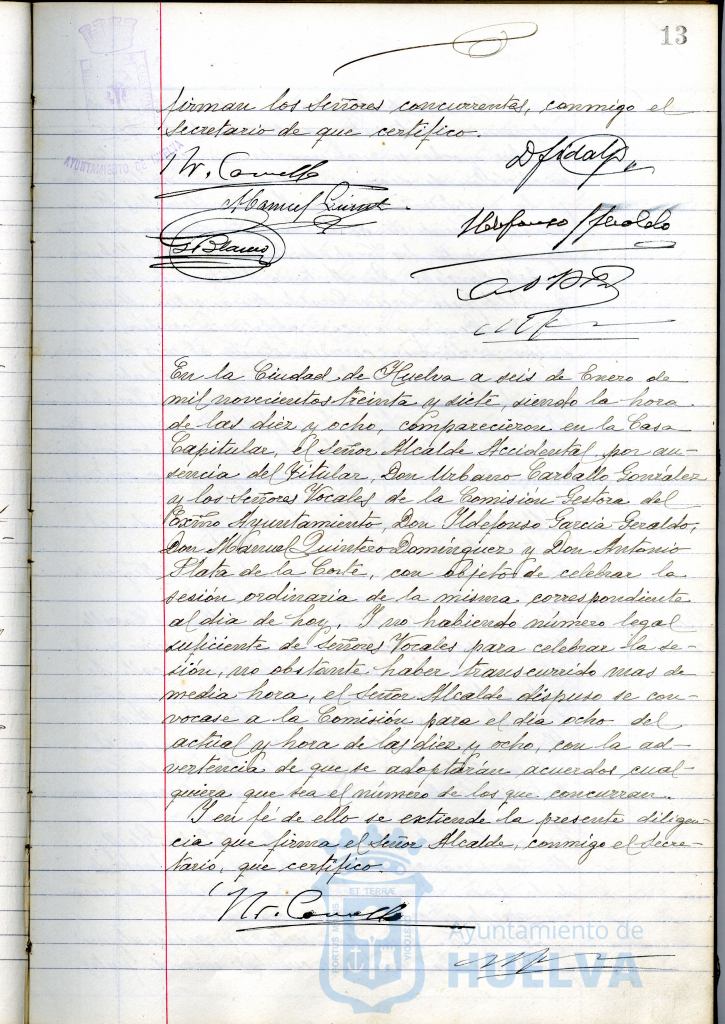 13
firman los señores concurrentes, conmigo el
secretario de que certifico.
AYUNTAMIENTO DE HUELVA
En la Ciudad de Huelva a seis de Enero de
mil novecientos treinta y siete, siendo la hora
de las diez y ocho, comparecieron en la Casa
Capitular, el señor Alcalde Accidental, por au-
sencia del Titular, Don Urbano Carballo González
y los Señores Vocales de la Comisión Gestora del
Excmo Ayuntamiento, Don Ildefonso García Geraldo,
Don Manuel Quintero Domínguez y Don Antonio
Plata de la Corte, con objeto de celebrar la
sesión ordinaria de la misma correspondiente
al día de hoy. Y no habiendo número legal
suficiente de Señores Vocales para celebrar la se-
sión, no obstante haber transcurrido mas de
media hora, el Señor Alcalde dispuso se con-
vocase a la Comisión para el día ocho del
actual y hora de las diez y ocho, con la ad-
vertencia de que se adoptarán acuerdos cual-
quiera que sea el número de los que concurran.
Y en fé de ello se extiende la presente diligen-
cia que firma el Señor Alcalde, conmigo el Secre-
tario, que certifico.
Ayuntamiento de
HUELVA